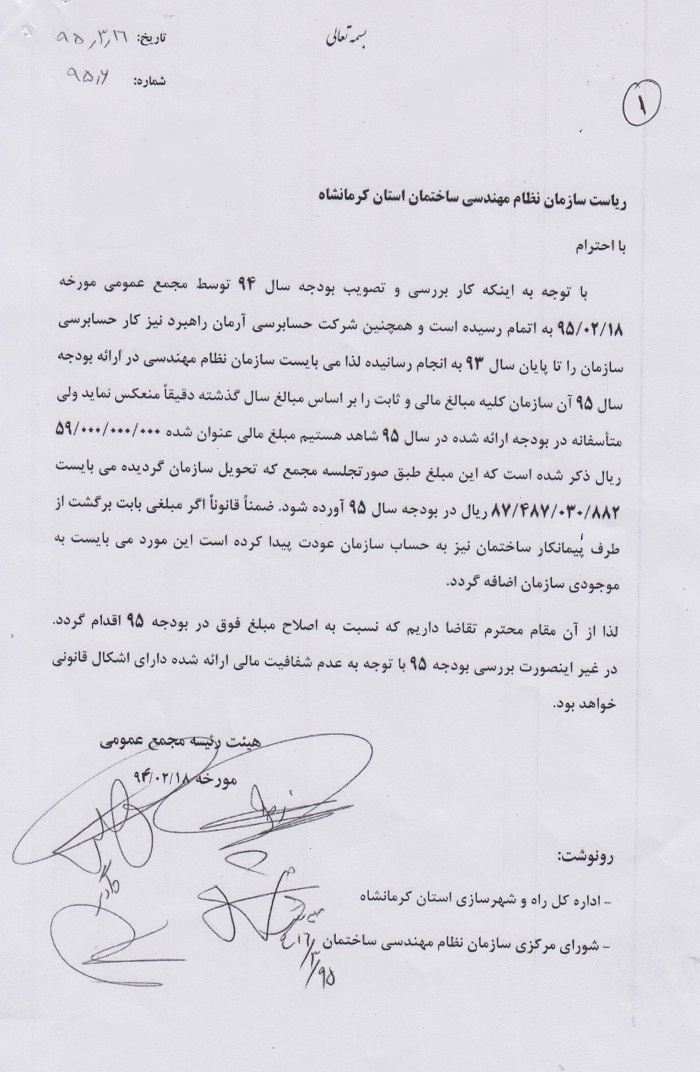 بسمه تعالی
تاریخ: ۹۵٫۳٫۱۶
شماره: ۹۵٫۶
۱
ریاست سازمان نظام مهندسی ساختمان استان کرمانشاه
با احترام
با توجه به اینکه کار بررسی و تصویب بودجه سال ۹۴ توسط مجمع عمومی مورخه
۹۵/۰۲/۱۸ به اتمام رسیده است و همچنین شرکت حسابرسی آرمان راهبرد نیز کار حسابرسی
سازمان را تا پایان سال ۹۳ به انجام رسانیده لذا می بایست سازمان نظام مهندسی در ارائه بودجه
سال ۹۵ آن سازمان کلیه مبالغ مالی و ثابت را بر اساس مبالغ سال گذشته دقیقاً منعکس نماید ولی
متأسفانه در بودجه ارائه شده در سال ۹۵ شاهد هستیم مبلغ مالی عنوان شده ۵۹/۰۰۰/۰۰۰/۰۰۰
ریال ذکر شده است که این مبلغ طبق صورتجلسه مجمع که تحویل سازمان گردیده می بایست
۸۷/۴۸۷/۰۳۰/۸۸۲ ریال در بودجه سال ۹۵ آورده شود. ضمناً قانوناً اگر مبلغی بابت برگشت از
طرف پیمانکار ساختمان نیز به حساب سازمان عودت پیدا کرده است این مورد می بایست به
موجودی سازمان اضافه گردد.
لذا از آن مقام محترم تقاضا داریم که نسبت به اصلاح مبلغ فوق در بودجه ۹۵ اقدام گردد.
در غیر اینصورت بررسی بودجه ۹۵ با توجه به عدم شفافیت مالی ارائه شده دارای اشکال قانونی
خواهد بود.
هیئت رئیسه مجمع عمومی
مورخه ۹۴/۰۲/۱۸
رونوشت:
- اداره کل راه و شهرسازی استان کرمانشاه
- شورای مرکزی سازمان نظام مهندسی ساختمان
۱۶/۳/۹۵